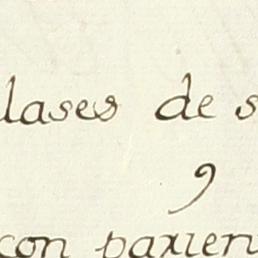 lases de s
9
con parien